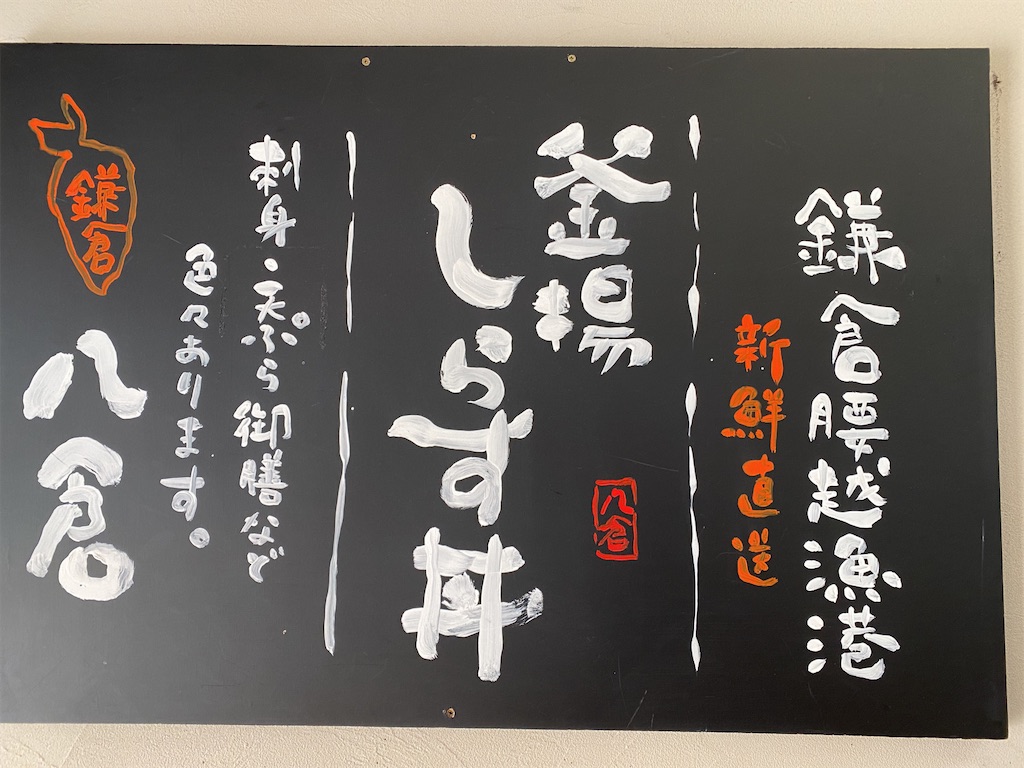 鎌倉腰越漁港
新鮮直送
釜揚
しらす丼
八倉
刺身・天ぷら御膳など
色々あります。
鎌倉
八倉